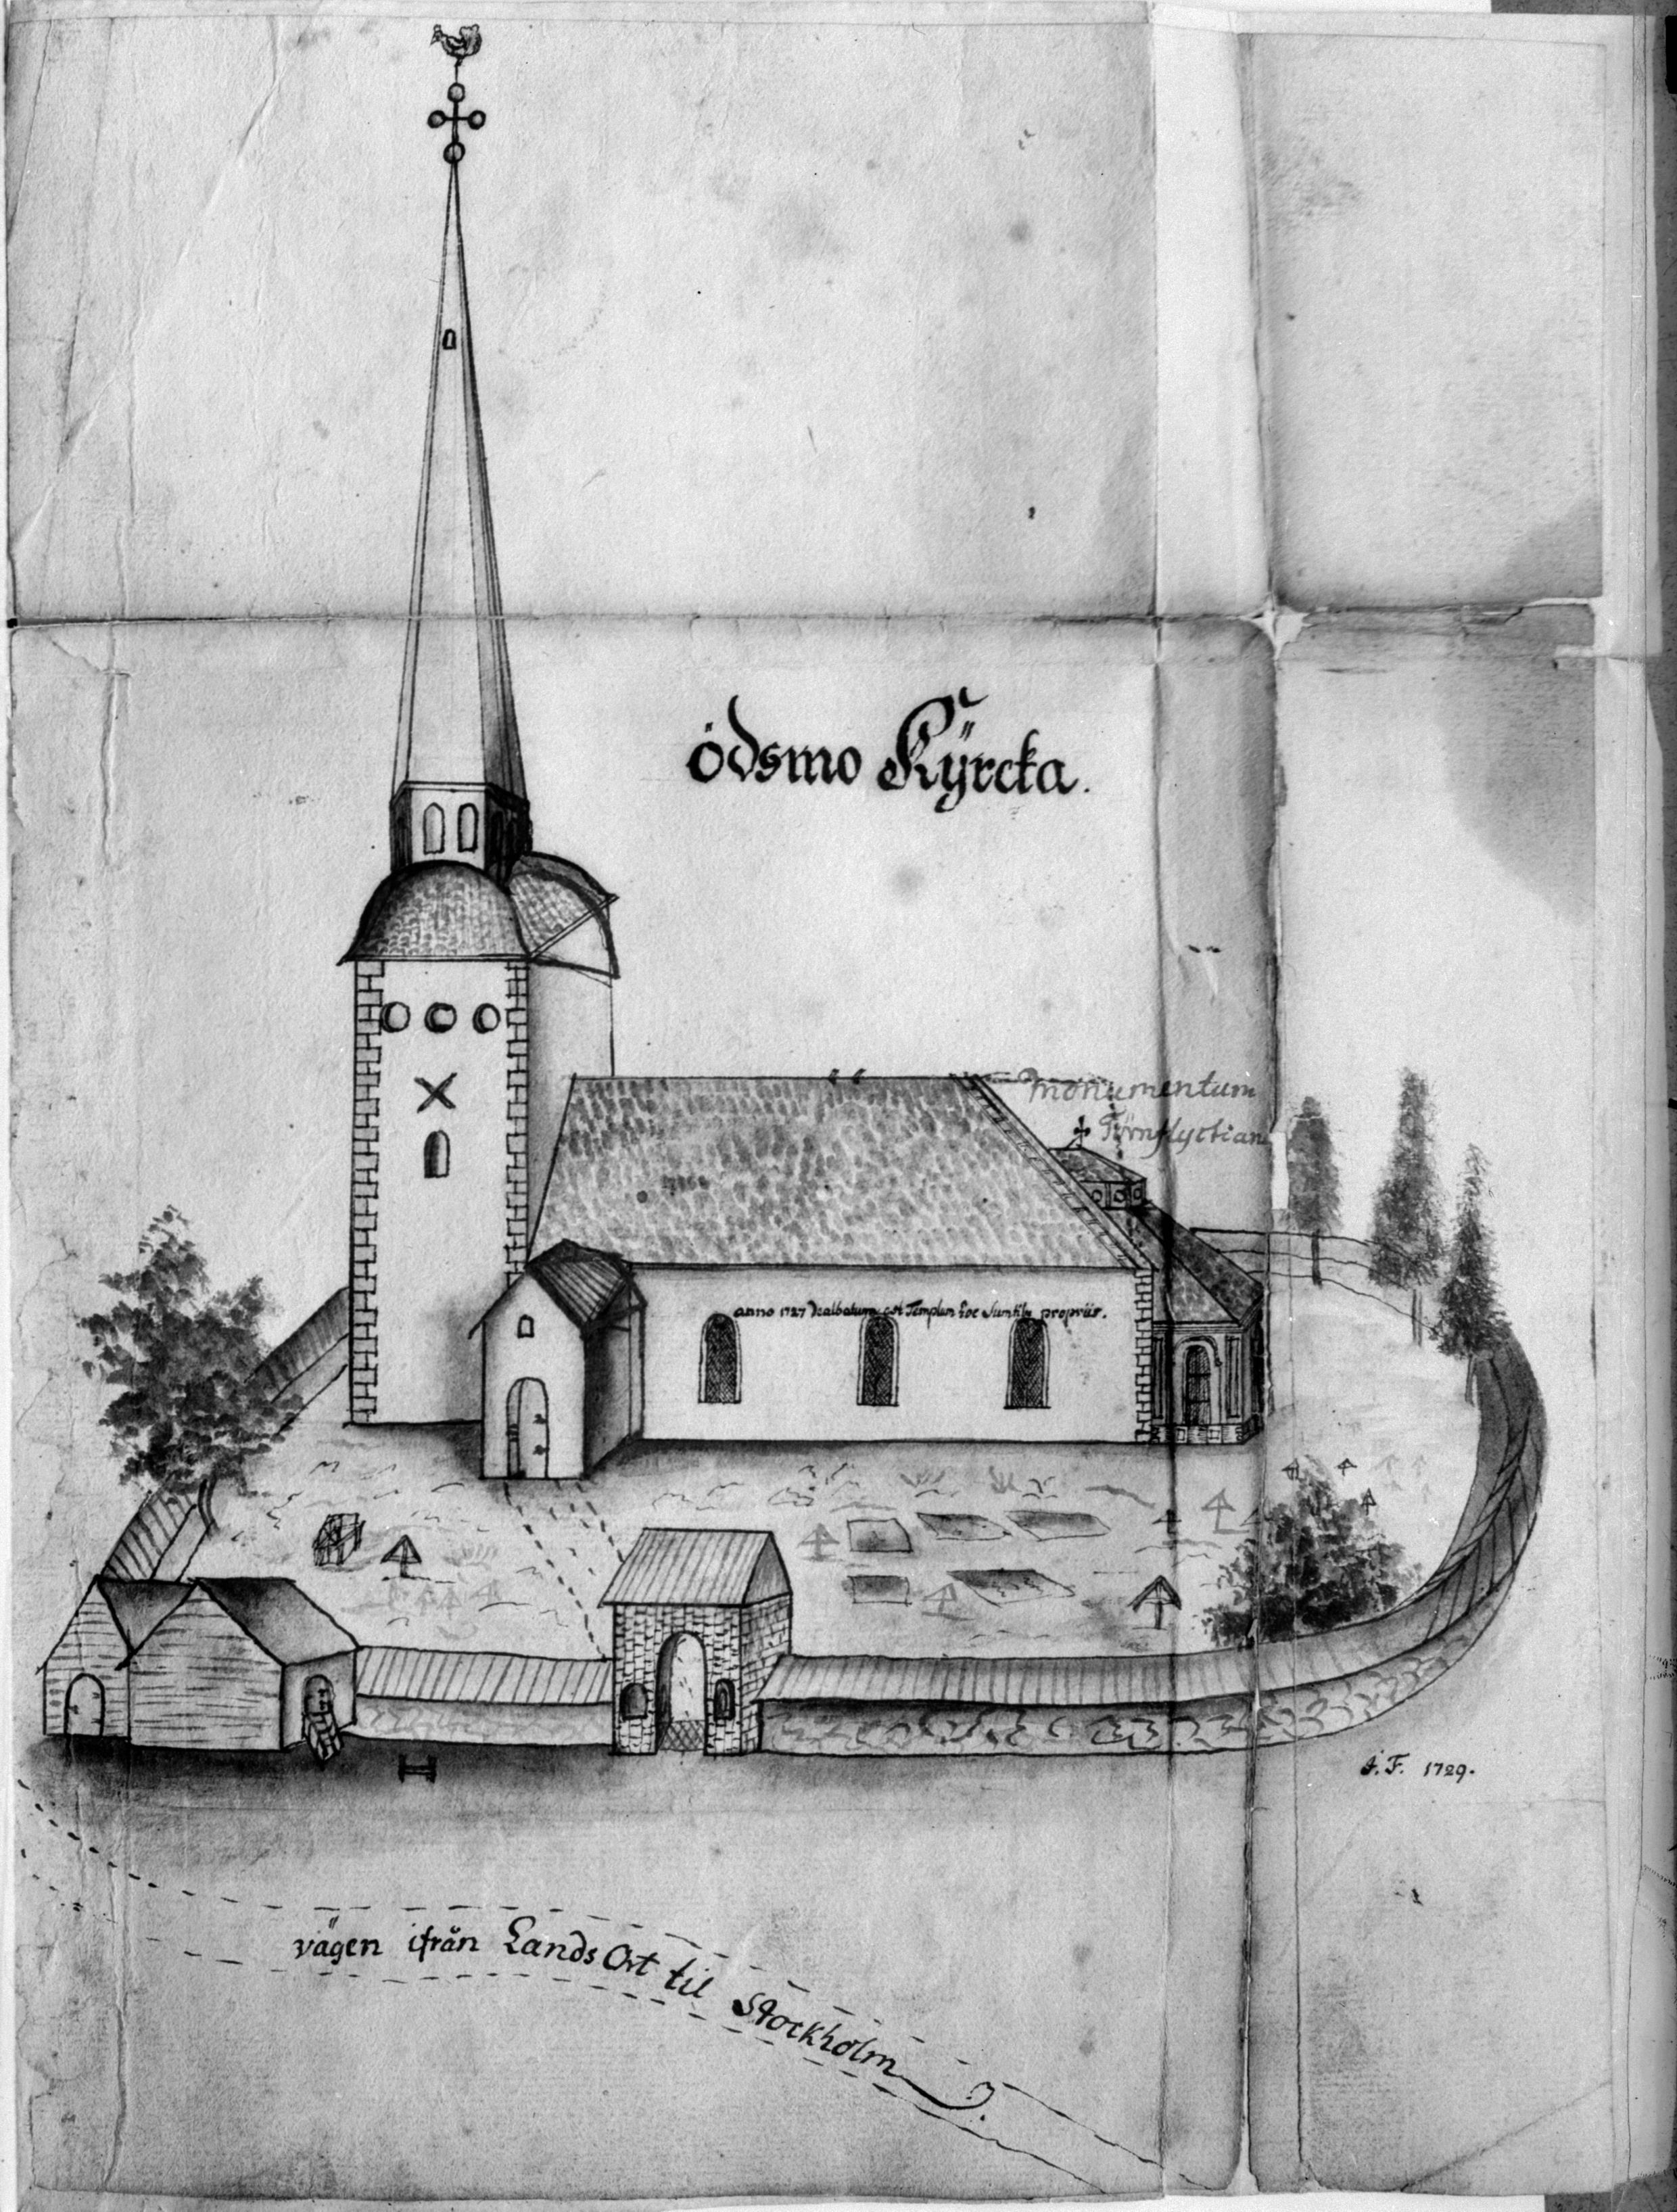 ödsmo Kÿrcka.
monumentum
Törnflyctian
anno 1727 dealbatum est Templum hoc Sumtibus propriis.
J. F. 1729.
vägen ifrån Lands Ort til Stockholm